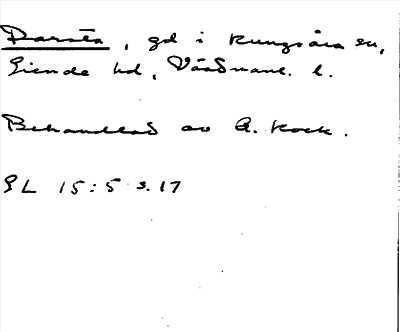 Darsta, gd i Kungsåra sn,
Siende hd, Västmanl. l.
Behandlad av A. Kock.
SL 15:5 s. 17